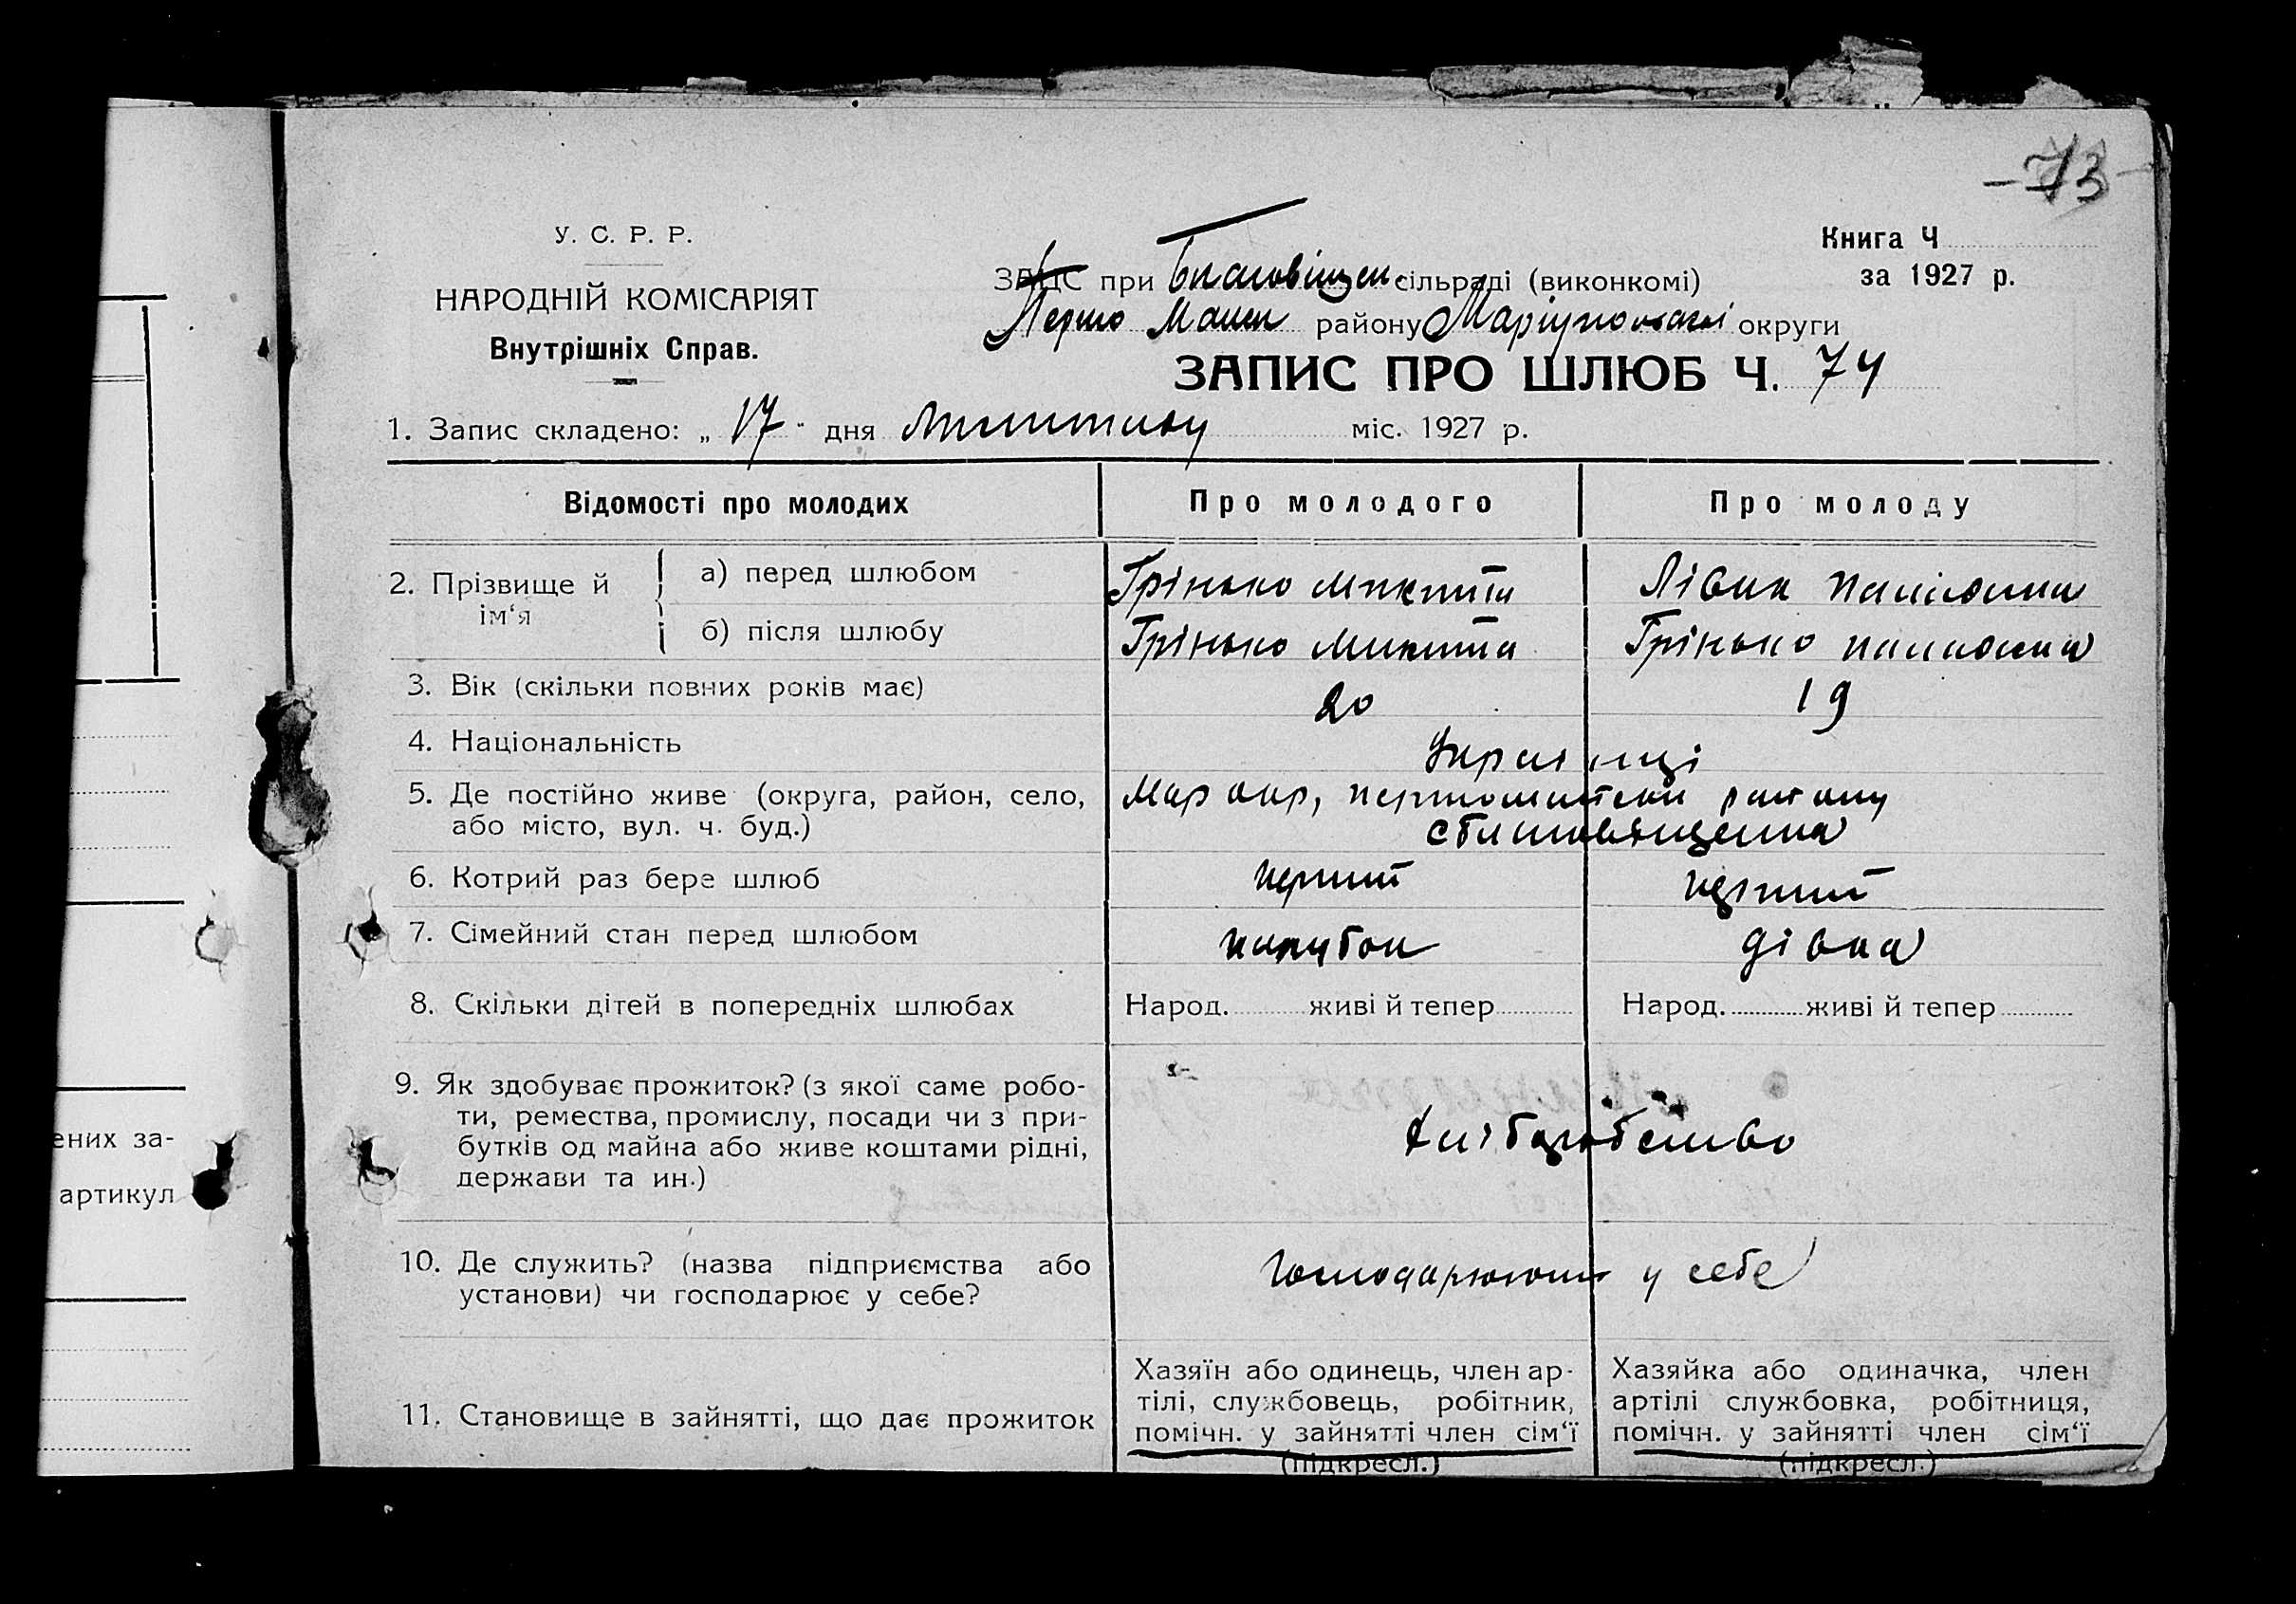 – 73 –
У. С. Р. Р.
НАРОДНІЙ КОМІСАРІЯТ
Внутрішніх Справ.
Книга Ч
за 1927 р.
ЗАЦС при Благовіщен. сільраді (виконкомі)
Першо Ман району Маріупольської округи
ЗАПИС ПРО ШЛЮБ Ч. 74
1. Запис складено: „ 17 “ дня Листопаду міс. 1927 р.
Відомості про молодих
Про молодого
Про молоду
2. Прізвище й ім‘я
а) перед шлюбом Грінько Микита Лівик
б) після шлюбу Грінько Микита Грінько
3. Вік (скільки повних років має) 20 19
4. Національність Українці
5. Де постійно живе (округа, район, село, Мар окр, району
або місто, вул. ч. буд.) с Благовіщенка
6. Котрий раз бере шлюб перший перший
7. Сімейний стан перед шлюбом парубок дівка
8. Скільки дітей в попередніх шлюбах Народ. живі й тепер Народ. живі й тепер
9. Як здобуває прожиток? (з якої саме робо-
ти, ремества, промислу, посади чи з при-
бутків од майна або живе коштами рідні,
держави та ин.)
Хліборобство
10. Де служить? (назва підприємства або
установи) чи господарює у себе?
Господарюють у себе
11. Становище в зайнятті, що дає прожиток
Хазяїн або одинець, член ар-
тілі, службовець, робітник,
помічн. у зайнятті член сім‘ї
(підкресл.)
Хазяйка або одиначка, член
артілі службовка, робітниця,
помічн. у зайнятті член сім‘ї
(підкресл.)
ених за-
артикул